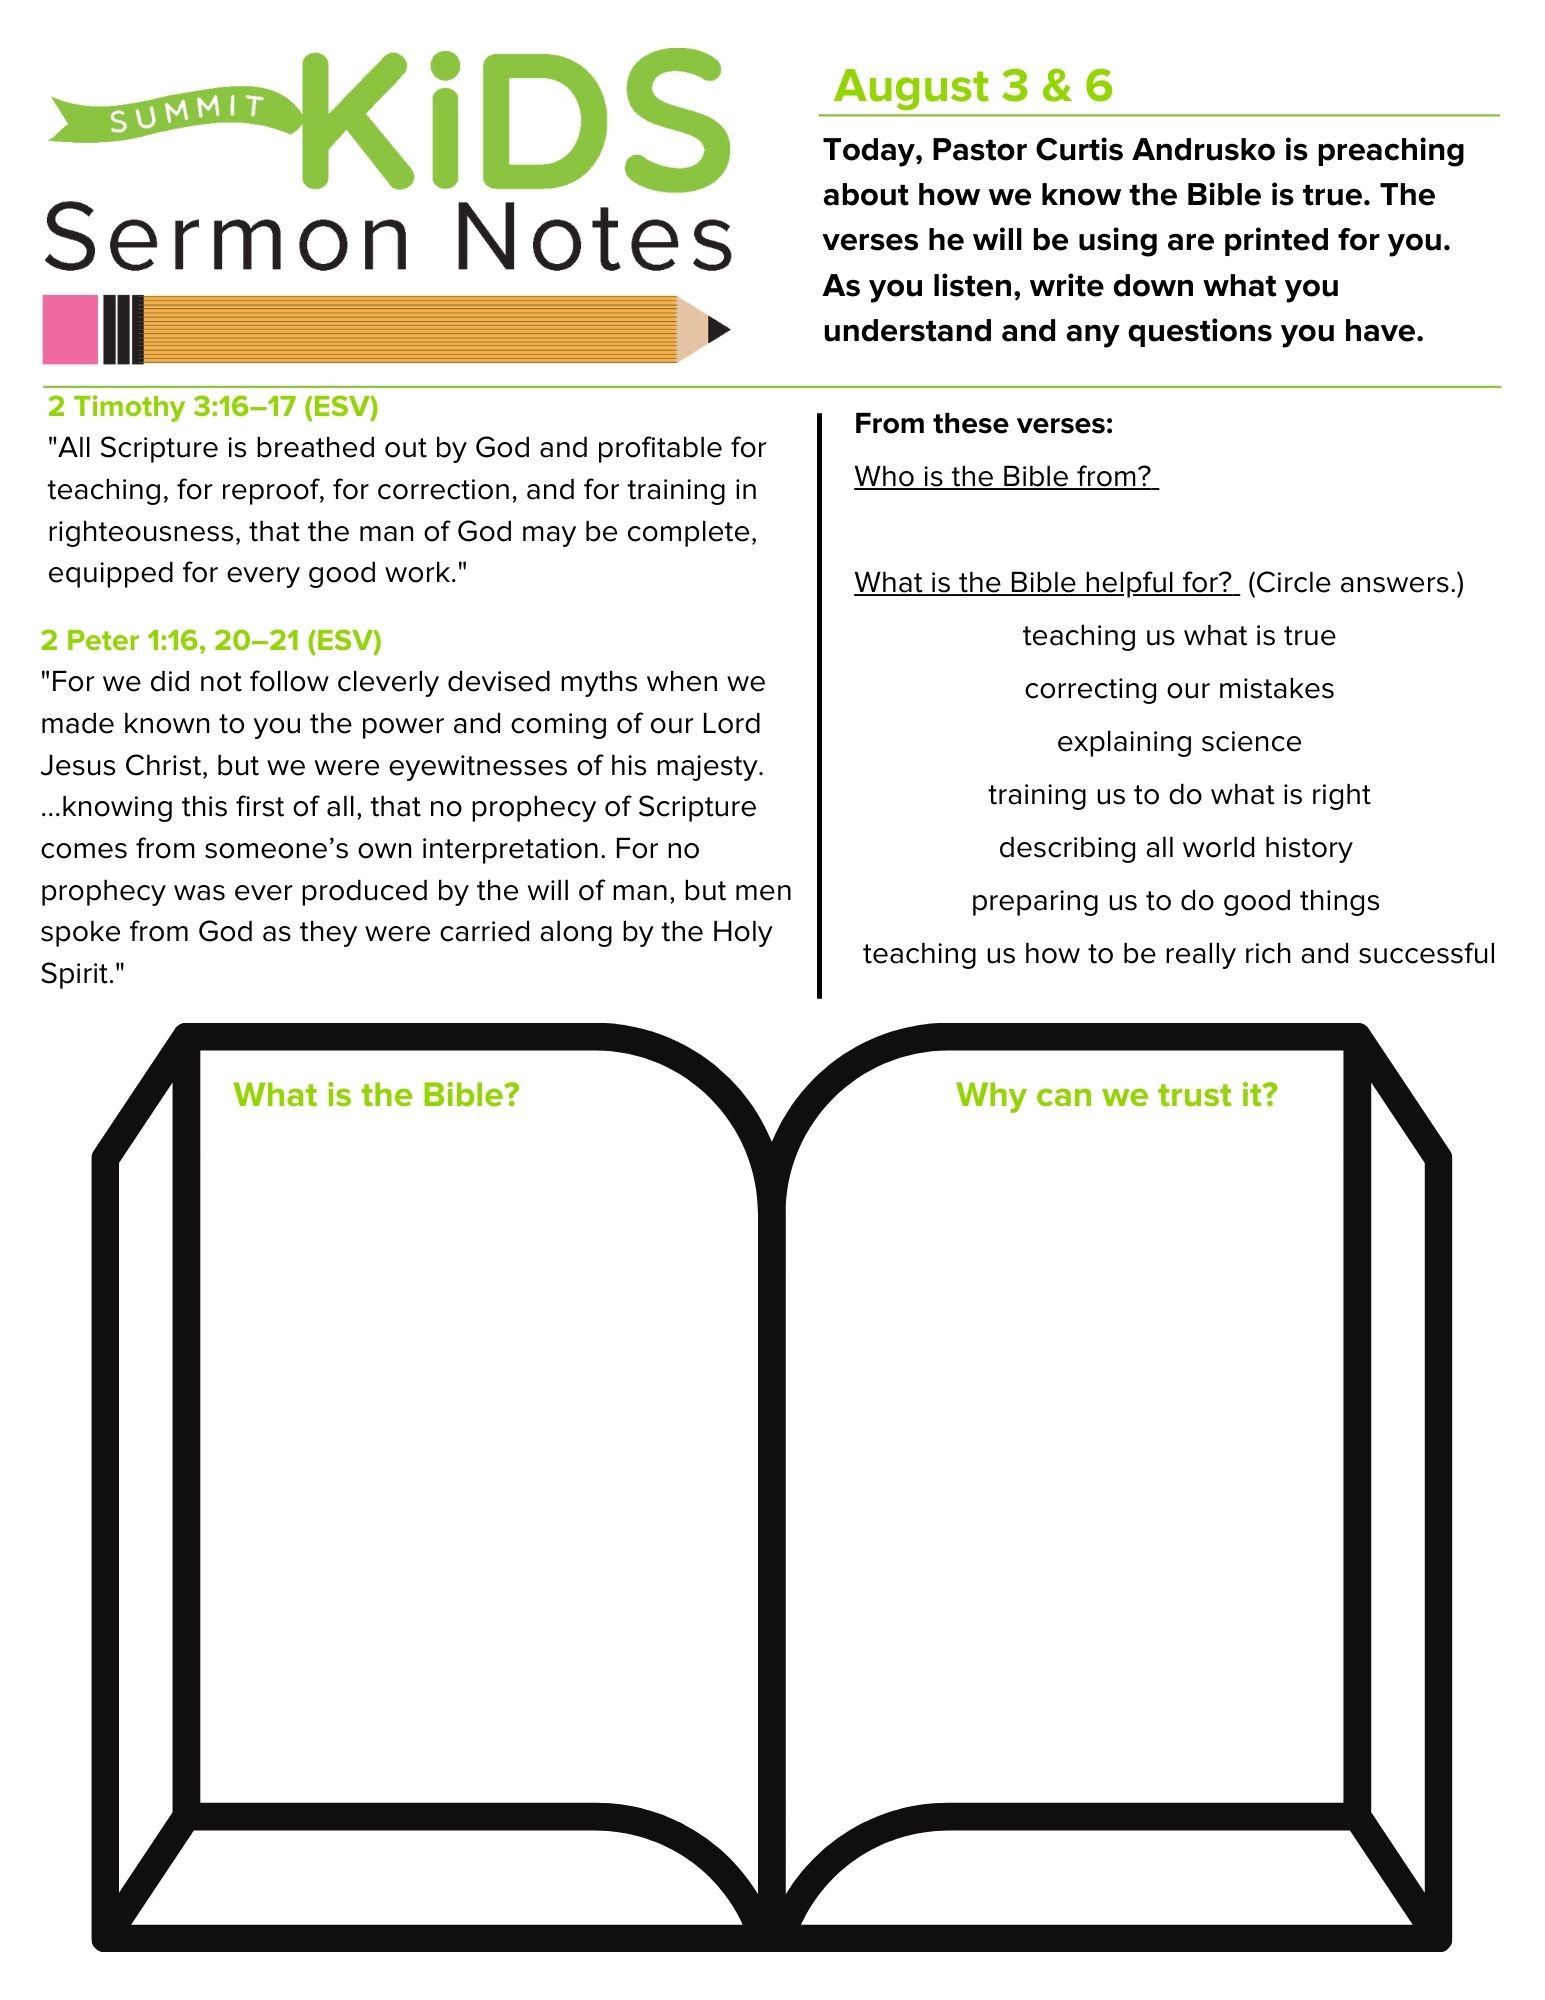 SUMMIT
KiDS
Sermon Notes
August 3 & 6
Today, Pastor Curtis Andrusko is preaching
about how we know the Bible is true. The
verses he will be using are printed for you.
As you listen, write down what you
understand and any questions you have.
2 Timothy 3:16–17 (ESV)
"All Scripture is breathed out by God and profitable for
teaching, for reproof, for correction, and for training in
righteousness, that the man of God may be complete,
equipped for every good work."
2 Peter 1:16, 20–21 (ESV)
"For we did not follow cleverly devised myths when we
made known to you the power and coming of our Lord
Jesus Christ, but we were eyewitnesses of his majesty.
...knowing this first of all, that no prophecy of Scripture
comes from someone’s own interpretation. For no
prophecy was ever produced by the will of man, but men
spoke from God as they were carried along by the Holy
Spirit."
From these verses:
Who is the Bible from?
What is the Bible helpful for? (Circle answers.)
teaching us what is true
correcting our mistakes
explaining science
training us to do what is right
describing all world history
preparing us to do good things
teaching us how to be really rich and successful
What is the Bible?
Why can we trust it?